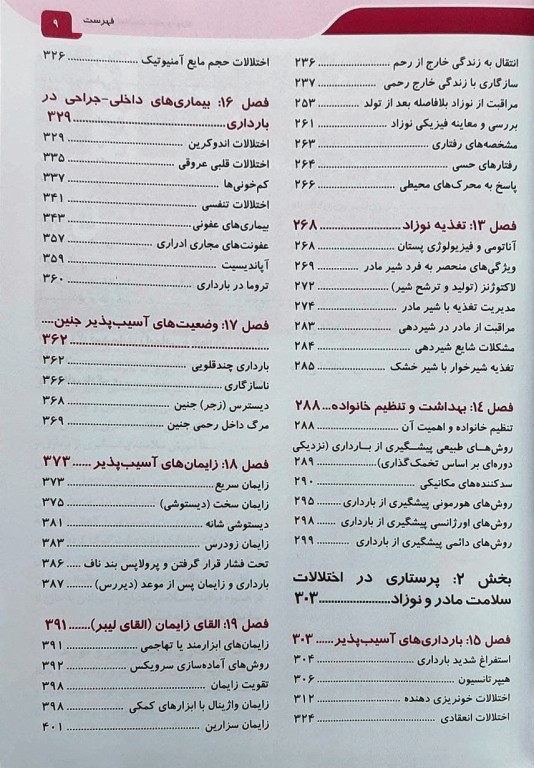 فهرست
۹
انتقال به زندگی خارج از رحم ۲۳۶
سازگاری با زندگی خارج رحمی ۲۳۷
مراقبت از نوزاد بلافاصله بعد از تولد ۲۵۳
بررسی و معاینه فیزیکی نوزاد ۲۶۱
مشخصه‌های رفتاری ۲۶۳
رفتارهای حسی ۲۶۴
پاسخ به محرک‌های محیطی ۲۶۶
فصل ۱۳: تغذیه نوزاد ۲۶۸
آناتومی و فیزیولوژی پستان ۲۶۸
ویژگی‌های منحصر به فرد شیر مادر ۲۶۹
لاکتوژنز (تولید و ترشح شیر) ۲۷۲
مدیریت تغذیه با شیر مادر ۲۷۴
مراقبت از مادر در شیردهی ۲۸۳
مشکلات شایع شیردهی ۲۸۴
تغذیه شیرخوار با شیر خشک ۲۸۵
فصل ۱۴: بهداشت و تنظیم خانواده ۲۸۸
تنظیم خانواده و اهمیت آن ۲۸۸
روش‌های طبیعی پیشگیری از بارداری (نزدیکی
دوره‌ای بر اساس تخمک‌گذاری) ۲۸۹
سدکننده‌های مکانیکی ۲۹۰
روش‌های هورمونی پیشگیری از بارداری ۲۹۵
روش‌های اورژانسی پیشگیری از بارداری ۲۹۸
روش‌های دائمی پیشگیری از بارداری ۲۹۹
بخش ۲: پرستاری در اختلالات
سلامت مادر و نوزاد ۳۰۳
فصل ۱۵: بارداری‌های آسیب‌پذیر ۳۰۳
استفراغ شدید بارداری ۳۰۴
هیپرتانسیون ۳۰۶
اختلالات خونریزی دهنده ۳۱۲
اختلالات انعقادی ۳۲۴
اختلالات حجم مایع آمنیوتیک ۳۲۶
فصل ۱۶: بیماری‌های داخلی-جراحی در
بارداری ۳۲۹
اختلالات اندوکرین ۳۲۹
اختلالات قلبی عروقی ۳۳۵
کم‌خونی‌ها ۳۳۷
اختلالات تنفسی ۳۴۱
بیماری‌های عفونی ۳۴۳
عفونت‌های مجاری ادراری ۳۵۷
آپاندیسیت ۳۵۹
تروما در بارداری ۳۶۰
فصل ۱۷: وضعیت‌های آسیب‌پذیر جنین
۳۶۲
بارداری چندقلویی ۳۶۲
ناسازگاری ۳۶۶
دیسترس (زجر) جنین ۳۶۸
مرگ داخل رحمی جنین ۳۶۹
فصل ۱۸: زایمان‌های آسیب‌پذیر ۳۷۳
زایمان سریع ۳۷۳
زایمان سخت (دیستوشی) ۳۷۵
دیستوشی شانه ۳۸۱
زایمان زودرس ۳۸۳
تحت فشار قرار گرفتن و پرولاپس بند ناف ۳۸۶
بارداری و زایمان پس از موعد (دیررس) ۳۸۷
فصل ۱۹: القای زایمان (القای لیبر) ۳۹۱
زایمان‌های ابزارمند یا تهاجمی ۳۹۱
روش‌های آماده‌سازی سرویکس ۳۹۲
تقویت زایمان ۳۹۸
زایمان واژینال با ابزارهای کمکی ۳۹۸
زایمان سزارین ۴۰۱